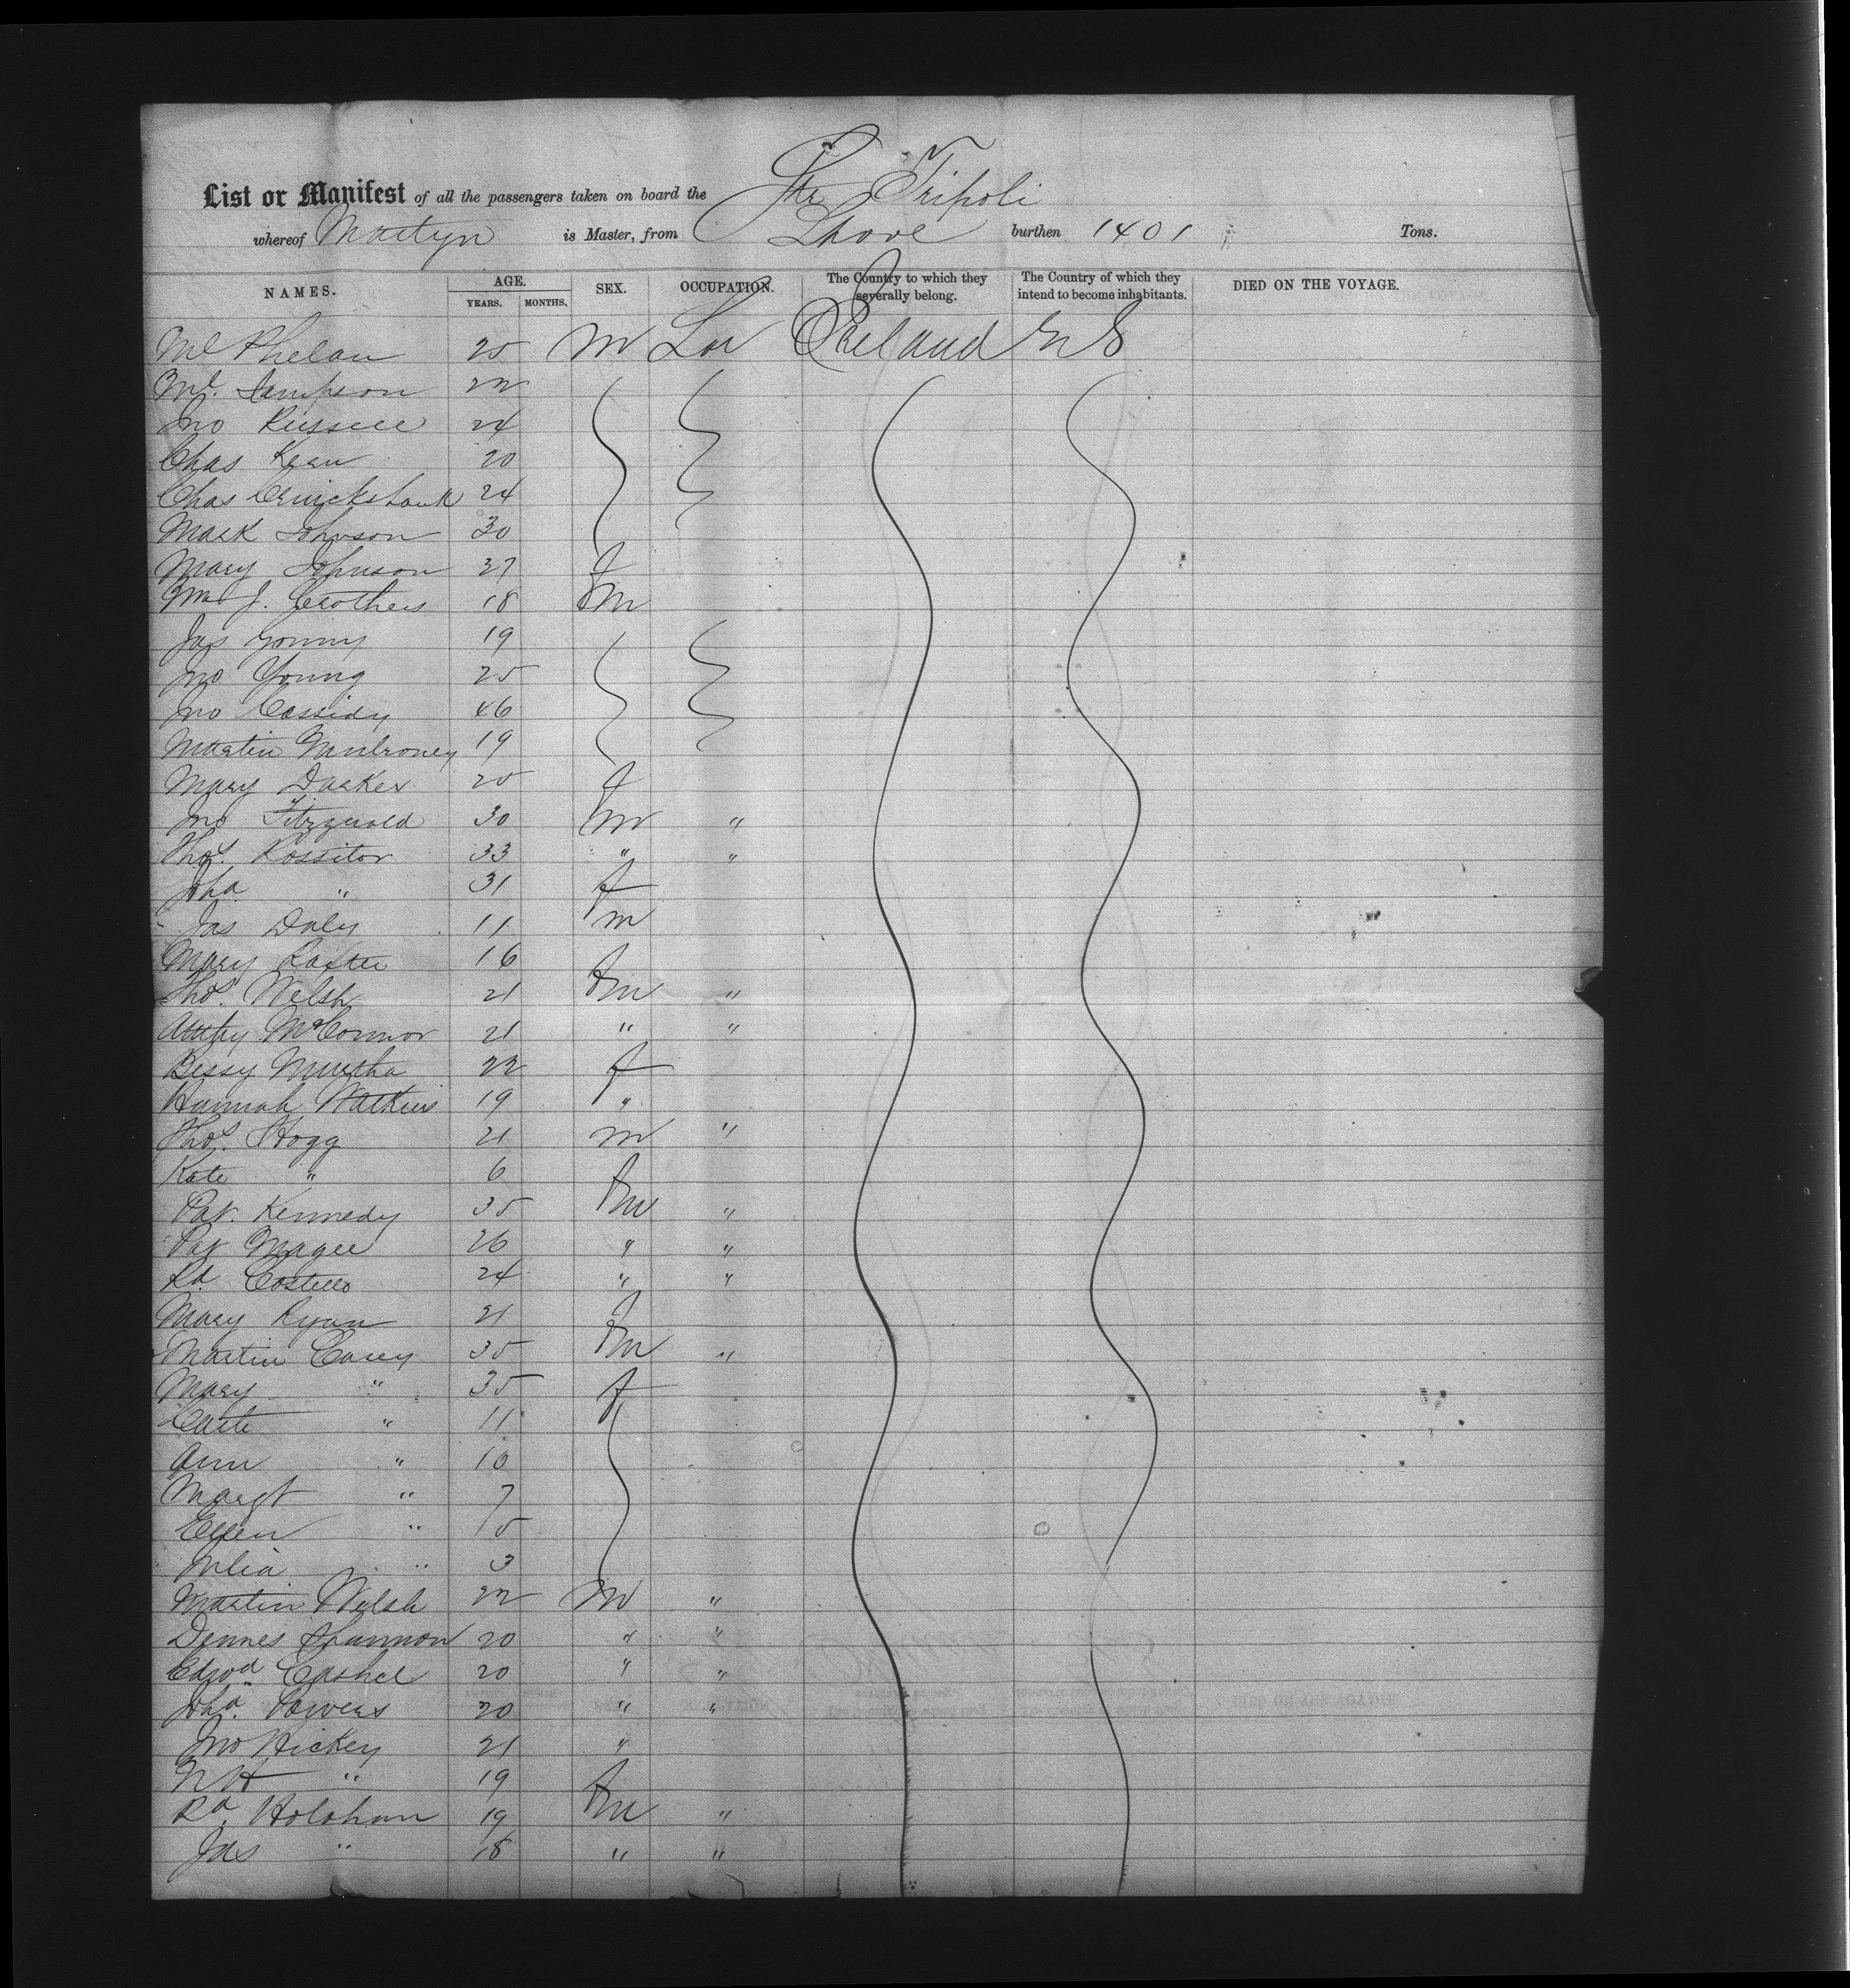 List or Manifest of all the passengers taken on board the Str Tripoli
whereof Martyn is Master, from Lpool burthen 1401 Tons.
NAMES. AGE. SEX. OCCUPATION. The Country to which they severally belong. The Country of which they intend to become inhabitants. DIED ON THE VOYAGE.
YEARS. MONTHS.
Ml Phelan 25 M Lar Ireland US
Ml. Sampson 22
Jno Russell 24
Chas Kean 20
Chas Cruickshank 24
Mark Johnson 30
Mary Johnson 27 f
Wm J. Crothers 18 m
Jas 19
Jno Young 25
Jno Cassidy 46
Martin Mulroney 19
Mary Darker 20 f
Jno Fitzgerald 30 m "
Thos. Rossitor 33 " "
Joha " 31 f
Jas Daly 11 m
Mary 16 f
Thos. Welsh 21 m "
McConnor 21 " "
Bessy Murtha 22 f
Hannah Watkins 19 "
Thos. Hogg 21 m "
Kate " 6 f
Pat. Kennedy 35 m "
Pat Magee 26 " "
Rd. Costello 24 " "
Mary Ryan 21 f
Martin Carey 35 m "
Mary " 35 f
" 11
Ann " 10
Margt " 7
Ellen " 5
Julia " 3
Martin Welsh 22 M "
Dennes Shannon 20 " "
Edwd Cashel 20 " "
Joha. Powers 20 " "
Jno Hickey 21 "
" 19 f
Rd. Holohan 19 m "
Jas " 18 " "